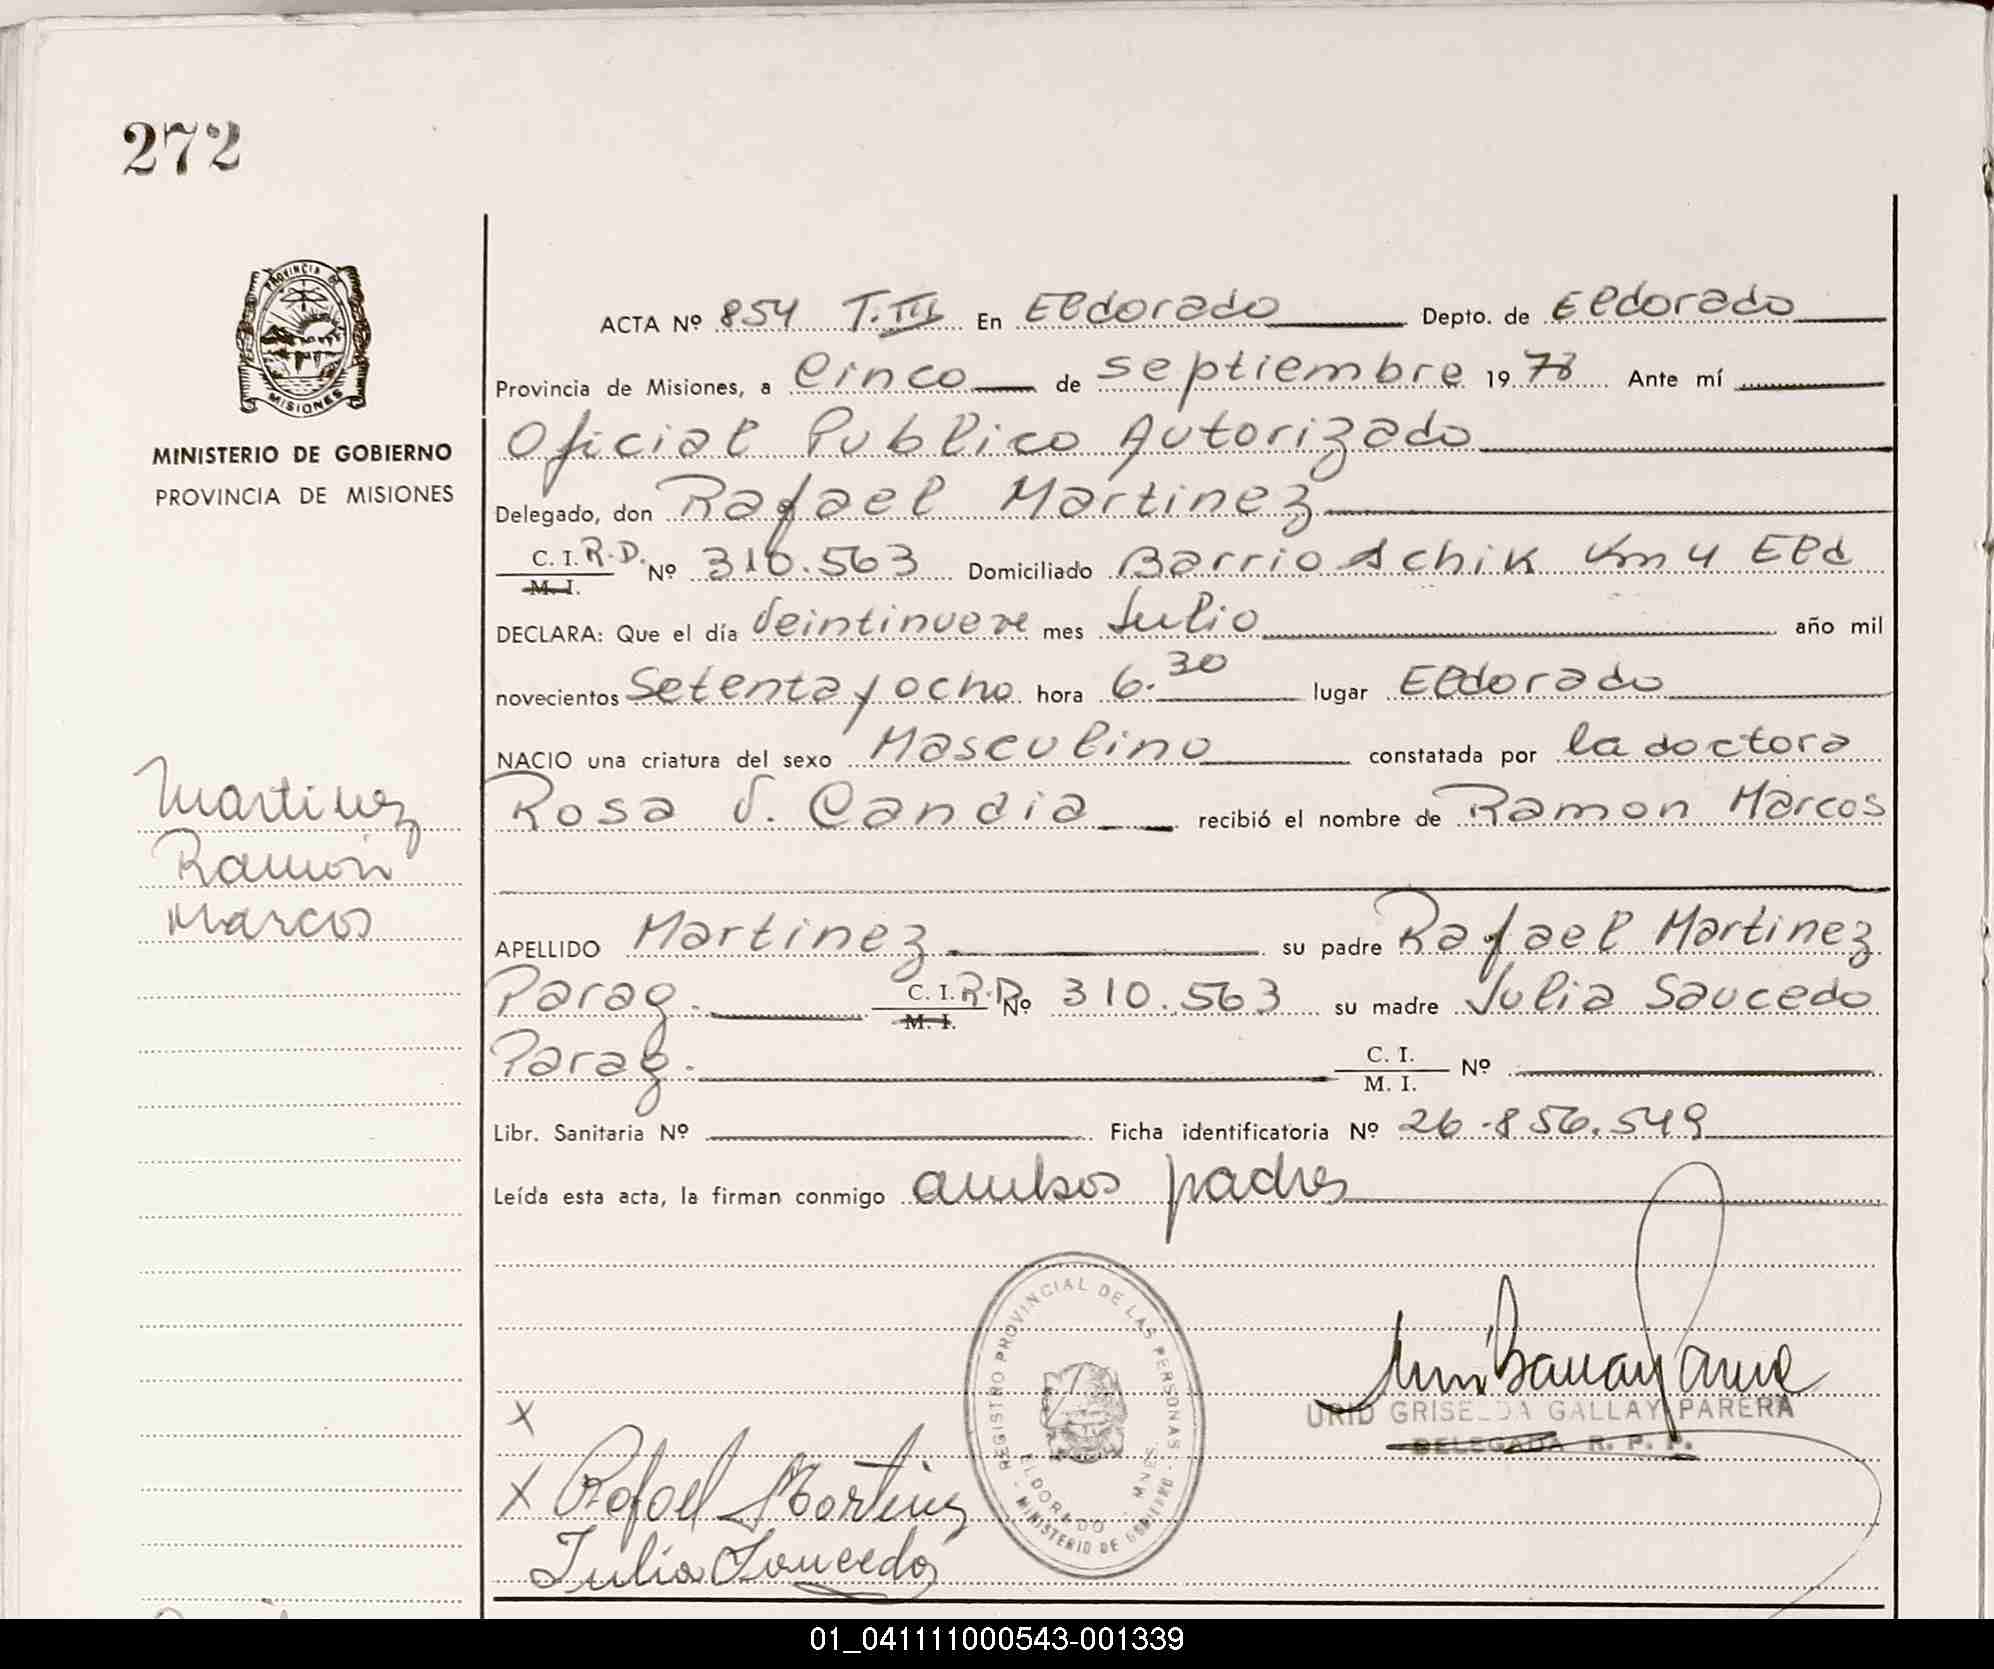 272
PROVINCIA DE
MISIONES
MINISTERIO DE GOBIERNO
PROVINCIA DE MISIONES
ACTA Nº 854 T.III En Eldorado Depto. de Eldorado
Provincia de Misiones, a Cinco de septiembre 19 78 Ante mí
Oficial Publico Autorizado
Delegado, don Rafael Martinez
C. I. R.D. Nº 310.563 Domiciliado Barrio Schik Km 4 Eld
M. I.
DECLARA: Que el día Veintinueve mes Julio año mil
novecientos Setenta y ocho hora 6.30 lugar Eldorado
NACIO una criatura del sexo Masculino constatada por la doctora
Rosa V. Candia recibió el nombre de Ramon Marcos
Martinez
Ramón
Marcos
APELLIDO Martinez su padre Rafael Martinez
Parag. C. I. R.D. Nº 310.563 su madre Julia Saucedo
M. I.
Parag. C. I. Nº
M. I.
Libr. Sanitaria Nº Ficha identificatoria Nº 26.856.549
Leída esta acta, la firman conmigo ambos padres
REGISTRO PROVINCIAL DE LAS PERSONAS
ELDORADO - MNES.
MINISTERIO DE GOBIERNO
URID GRISELDA GALLAY PARERA
DELEGADA R. P. P.
X
X Rafael Martinez
Julia Saucedo
01_041111000543-001339